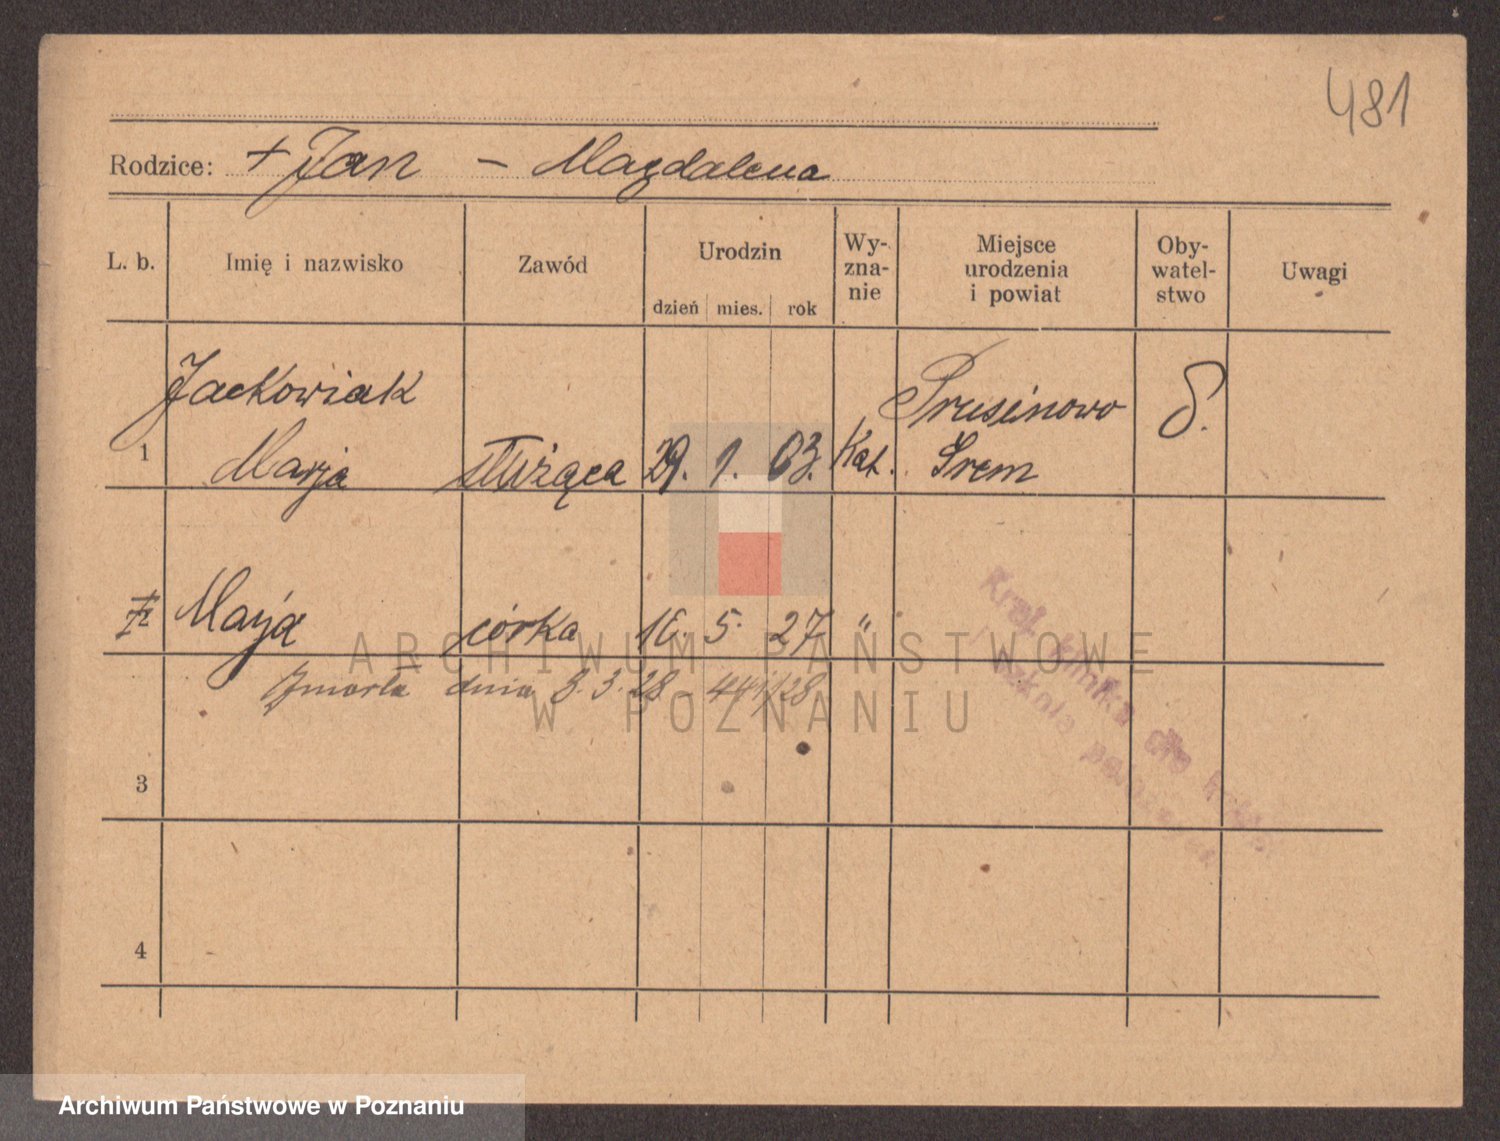 481
Rodzice: + Jan - Magdalena
L. b. Imię i nazwisko Zawód Urodzin dzień mies. rok Wyznanie Miejsce urodzenia i powiat Obywatelstwo Uwagi
Jackowiak Prusinowo
1 Marja służąca 29. 1. 03. Kat. Śrem
Marja córka 16. 5. 27 "
Zmarła dnia 3. 3. 28
3
4
ARCHIWUM PAŃSTWOWE
W POZNANIU
Kraj. klinika dla
szkoła
Archiwum Państwowe w Poznaniu